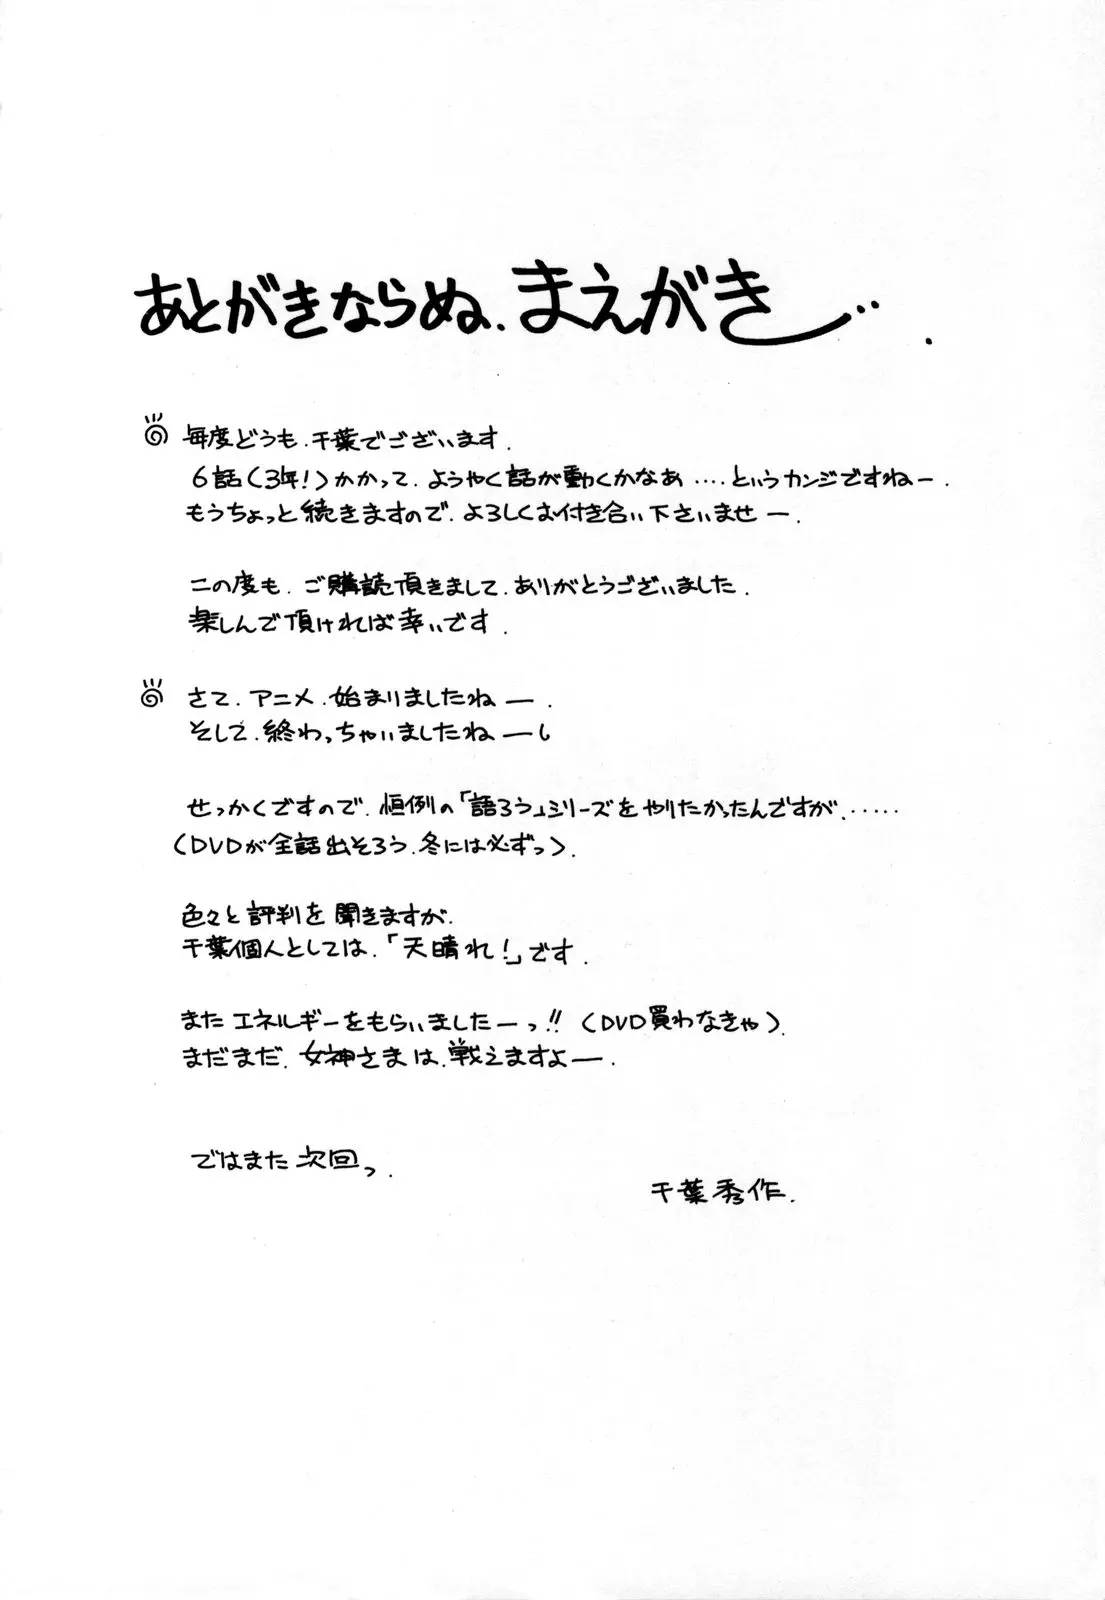 あとがきならぬ、まえがき…
毎度どうも、千葉でございます.
6話(3年!)かかって、ようやく話が動くかなぁ....というカンジですねー.
もうちょっと続きますので、よろしくお付き合い下さいませー.
この度も、ご購読頂きまして、ありがとうございました.
楽しんで頂ければ幸いです.
さて、アニメ、始まりましたねー.
そして、終わっちゃいましたねー
せっかくですので、恒例の「語ろう」シリーズをやりたかったんですが、.....
(DVDが全話出そろう、冬には必ずっ).
色々と評判を聞きますが、
千葉個人としては、「天晴れ!」です.
またエネルギーをもらいましたーっ!!(DVD買わなきゃ).
まだまだ、女神さまは、戦えますよー.
ではまた次回っ.
千葉秀作.